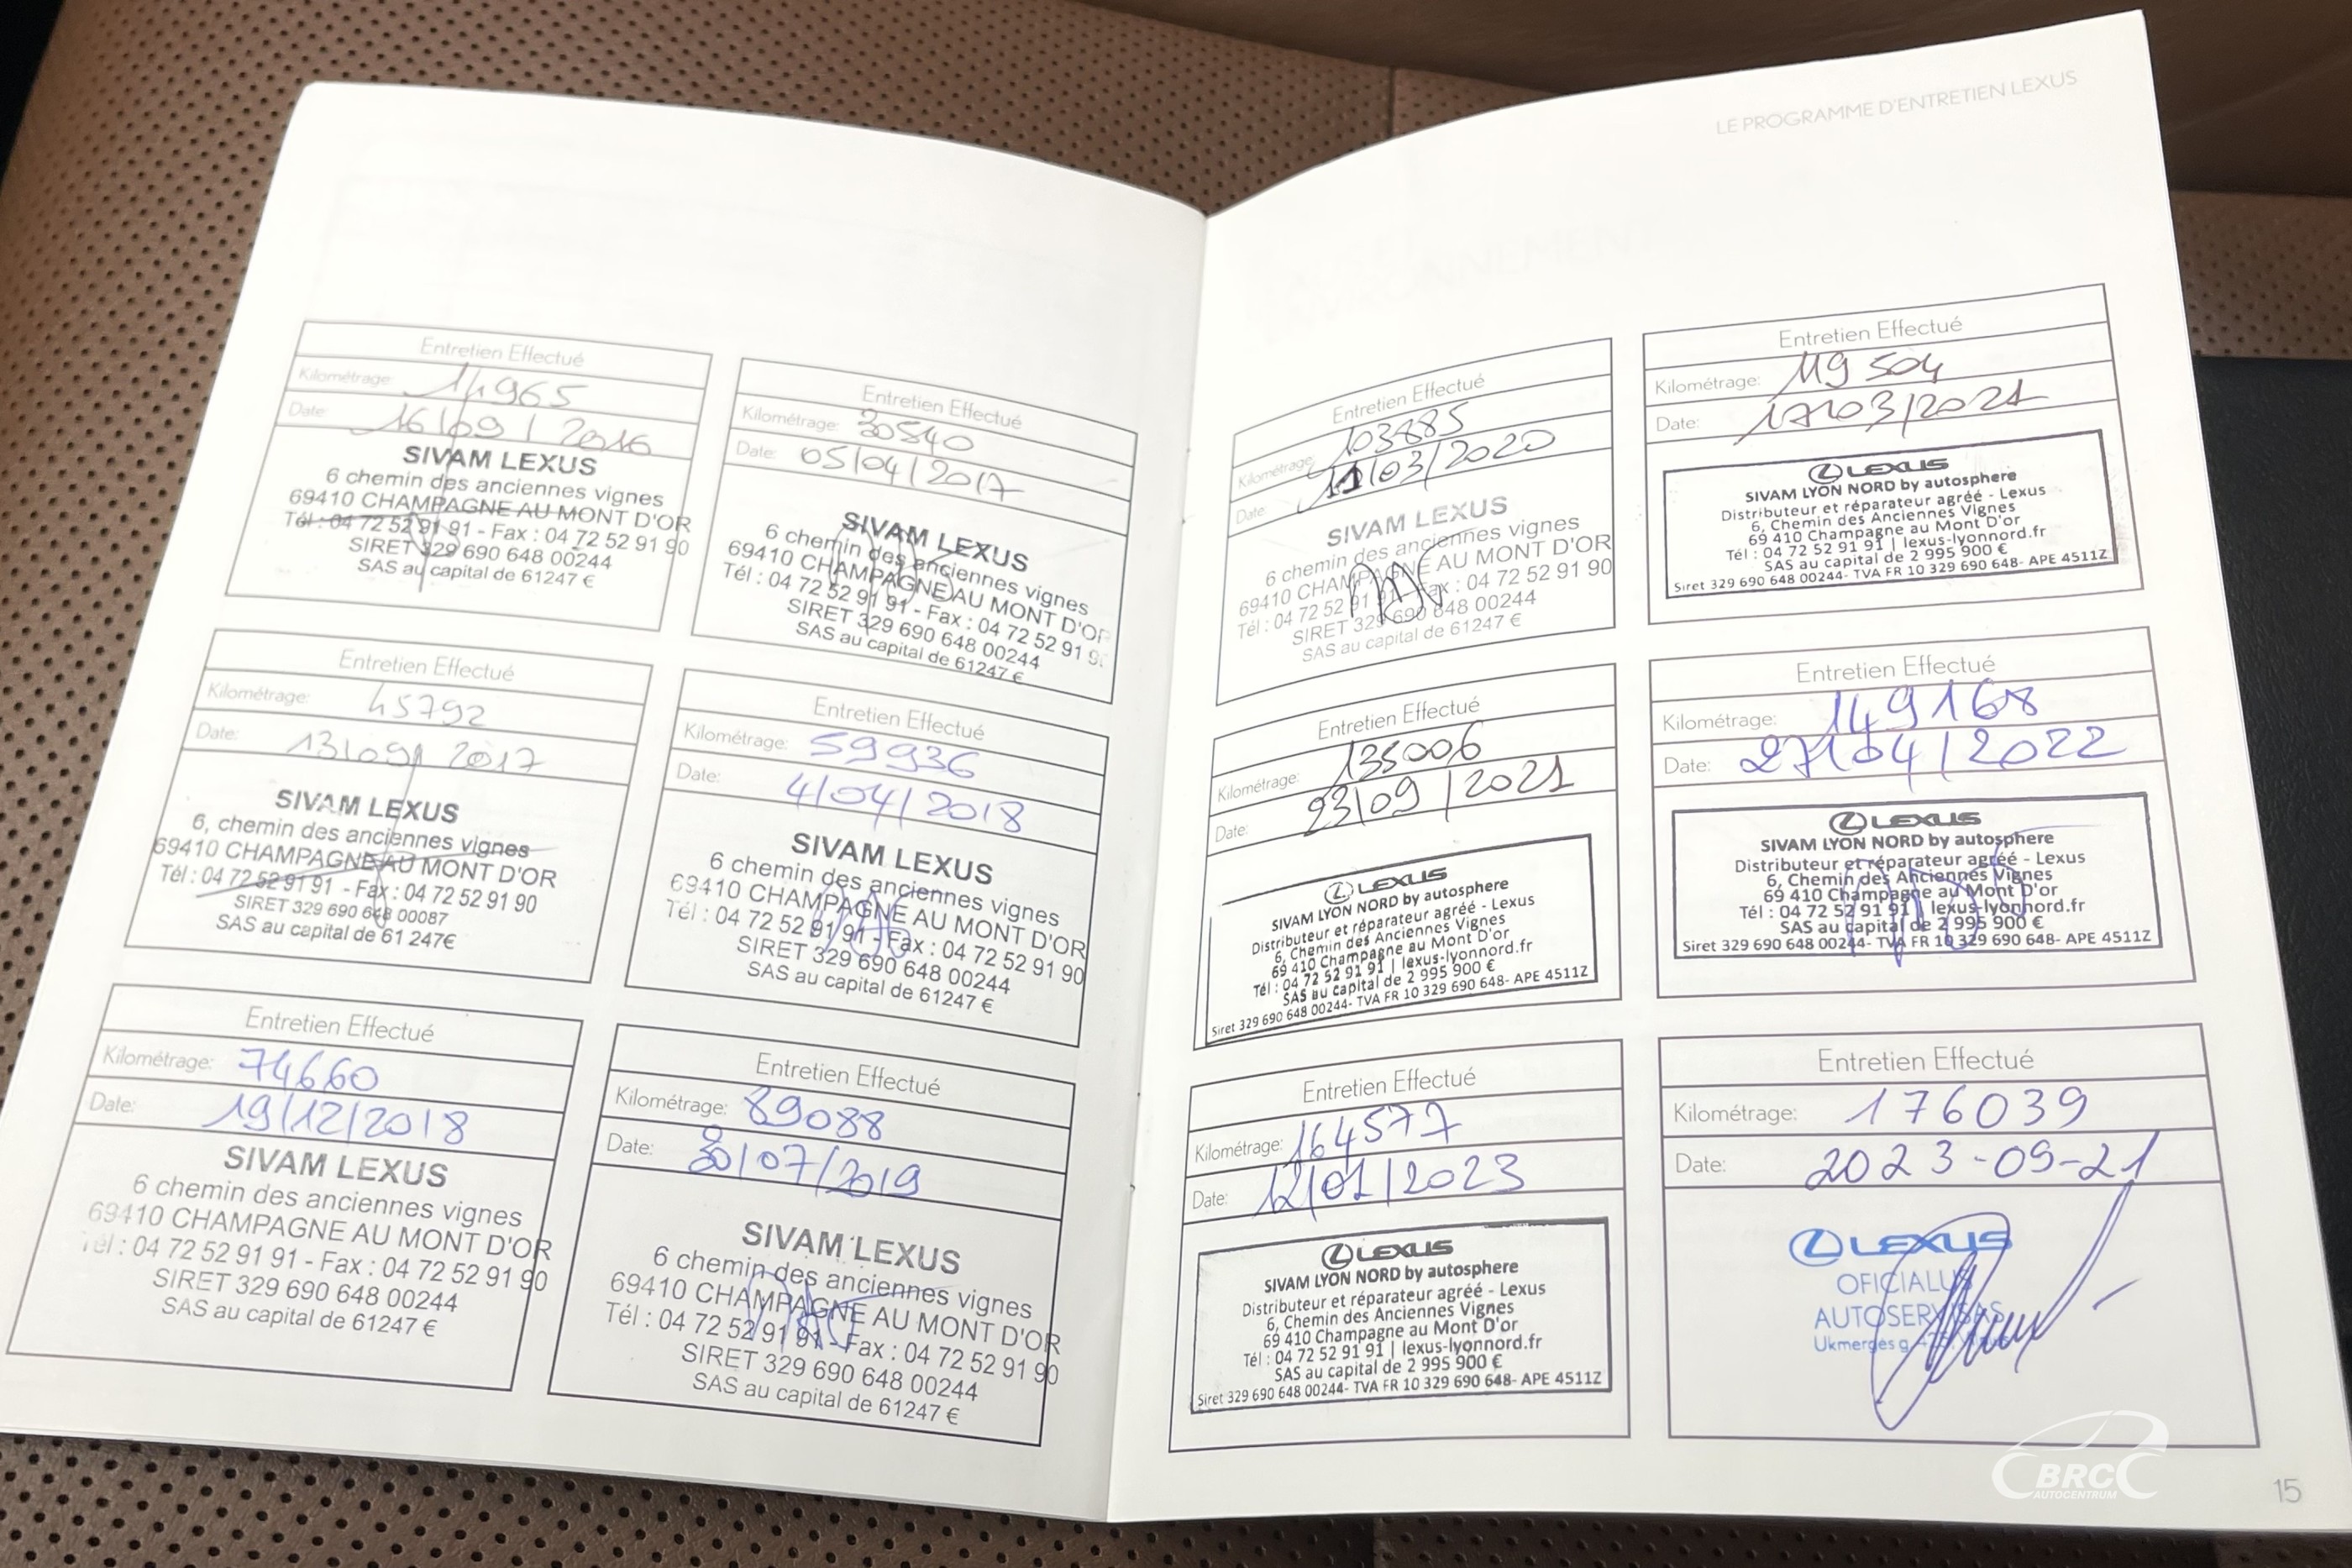 Entretien Effectué
Kilométrage: 14965
Date: 16/09/2016
SIVAM LEXUS
6 chemin des anciennes vignes
69410 CHAMPAGNE AU MONT D'OR
Tél : 04 72 52 91 91 - Fax : 04 72 52 91 90
SIRET 329 690 648 00244
SAS au capital de 61247 €
Entretien Effectué
Kilométrage: 30540
Date: 05/04/2017
SIVAM LEXUS
6 chemin des anciennes vignes
69410 CHAMPAGNE AU MONT D'OR
Tél : 04 72 52 91 91 - Fax : 04 72 52 91 90
SIRET 329 690 648 00244
SAS au capital de 61247 €
Entretien Effectué
Kilométrage: 45792
Date: 13/09/2017
SIVAM LEXUS
6, chemin des anciennes vignes
69410 CHAMPAGNE AU MONT D'OR
Tél : 04 72 52 91 91 - Fax : 04 72 52 91 90
SIRET 329 690 648 00087
SAS au capital de 61 247€
Entretien Effectué
Kilométrage: 59936
Date: 4/04/2018
SIVAM LEXUS
6 chemin des anciennes vignes
69410 CHAMPAGNE AU MONT D'OR
Tél : 04 72 52 91 91 - Fax : 04 72 52 91 90
SIRET 329 690 648 00244
SAS au capital de 61247 €
Entretien Effectué
Kilométrage: 74660
Date: 19/12/2018
SIVAM LEXUS
6 chemin des anciennes vignes
69410 CHAMPAGNE AU MONT D'OR
Tél : 04 72 52 91 91 - Fax : 04 72 52 91 90
SIRET 329 690 648 00244
SAS au capital de 61247 €
Entretien Effectué
Kilométrage: 89088
Date: 30/07/2019
SIVAM LEXUS
6 chemin des anciennes vignes
69410 CHAMPAGNE AU MONT D'OR
Tél : 04 72 52 91 91 - Fax : 04 72 52 91 90
SIRET 329 690 648 00244
SAS au capital de 61247 €
LE PROGRAMME D'ENTRETIEN LEXUS
Entretien Effectué
Kilométrage: 103885
Date: 11/03/2020
SIVAM LEXUS
6 chemin des anciennes vignes
69410 CHAMPAGNE AU MONT D'OR
Tél : 04 72 52 91 91 - Fax : 04 72 52 91 90
SIRET 329 690 648 00244
SAS au capital de 61247 €
Entretien Effectué
Kilométrage: 119504
Date: 17/03/2021
LEXUS
SIVAM LYON NORD by autosphere
Distributeur et réparateur agréé - Lexus
6, Chemin des Anciennes Vignes
69 410 Champagne au Mont D'or
Tél : 04 72 52 91 91 | lexus-lyonnord.fr
SAS au capital de 2 995 900 €
Siret 329 690 648 00244- TVA FR 10 329 690 648- APE 4511Z
Entretien Effectué
Kilométrage: 135006
Date: 23/09/2021
LEXUS
SIVAM LYON NORD by autosphere
Distributeur et réparateur agréé - Lexus
6, Chemin des Anciennes Vignes
69 410 Champagne au Mont D'or
Tél : 04 72 52 91 91 | lexus-lyonnord.fr
SAS au capital de 2 995 900 €
Siret 329 690 648 00244- TVA FR 10 329 690 648- APE 4511Z
Entretien Effectué
Kilométrage: 149168
Date: 27/04/2022
LEXUS
SIVAM LYON NORD by autosphere
Distributeur et réparateur agréé - Lexus
6, Chemin des Anciennes Vignes
69 410 Champagne au Mont D'or
Tél : 04 72 52 91 91 | lexus-lyonnord.fr
SAS au capital de 2 995 900 €
Siret 329 690 648 00244- TVA FR 10 329 690 648- APE 4511Z
Entretien Effectué
Kilométrage: 164577
Date: 12/01/2023
LEXUS
SIVAM LYON NORD by autosphere
Distributeur et réparateur agréé - Lexus
6, Chemin des Anciennes Vignes
69 410 Champagne au Mont D'or
Tél : 04 72 52 91 91 | lexus-lyonnord.fr
SAS au capital de 2 995 900 €
Siret 329 690 648 00244- TVA FR 10 329 690 648- APE 4511Z
Entretien Effectué
Kilométrage: 176039
Date: 2023-09-21
LEXUS
OFICIALUS
AUTOSERVISAS
Ukmergės g.
BRC
AUTOCENTRUM
15